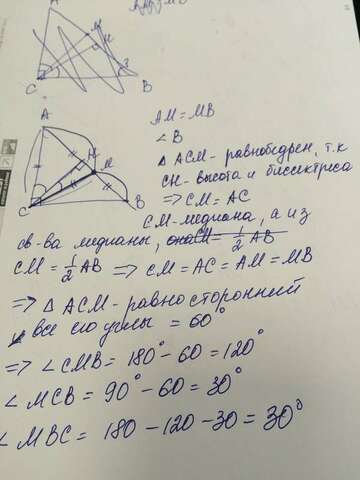 C
B
3
A
H
M
C
B
AM = MB
∠B
△ ACM - равнобедрен, т.к
CH - высота и биссектриса
⇒ CM = AC
CM - медиана, а из
св-ва медианы, CM = 1/2 AB
CM = 1/2 AB ⇒ CM = AC = AM = MB
⇒ △ ACM - равносторонний
и все его углы = 60°
⇒ ∠CMB = 180° - 60 = 120°
∠MCB = 90° - 60 = 30°
∠MBC = 180 - 120 - 30 = 30°